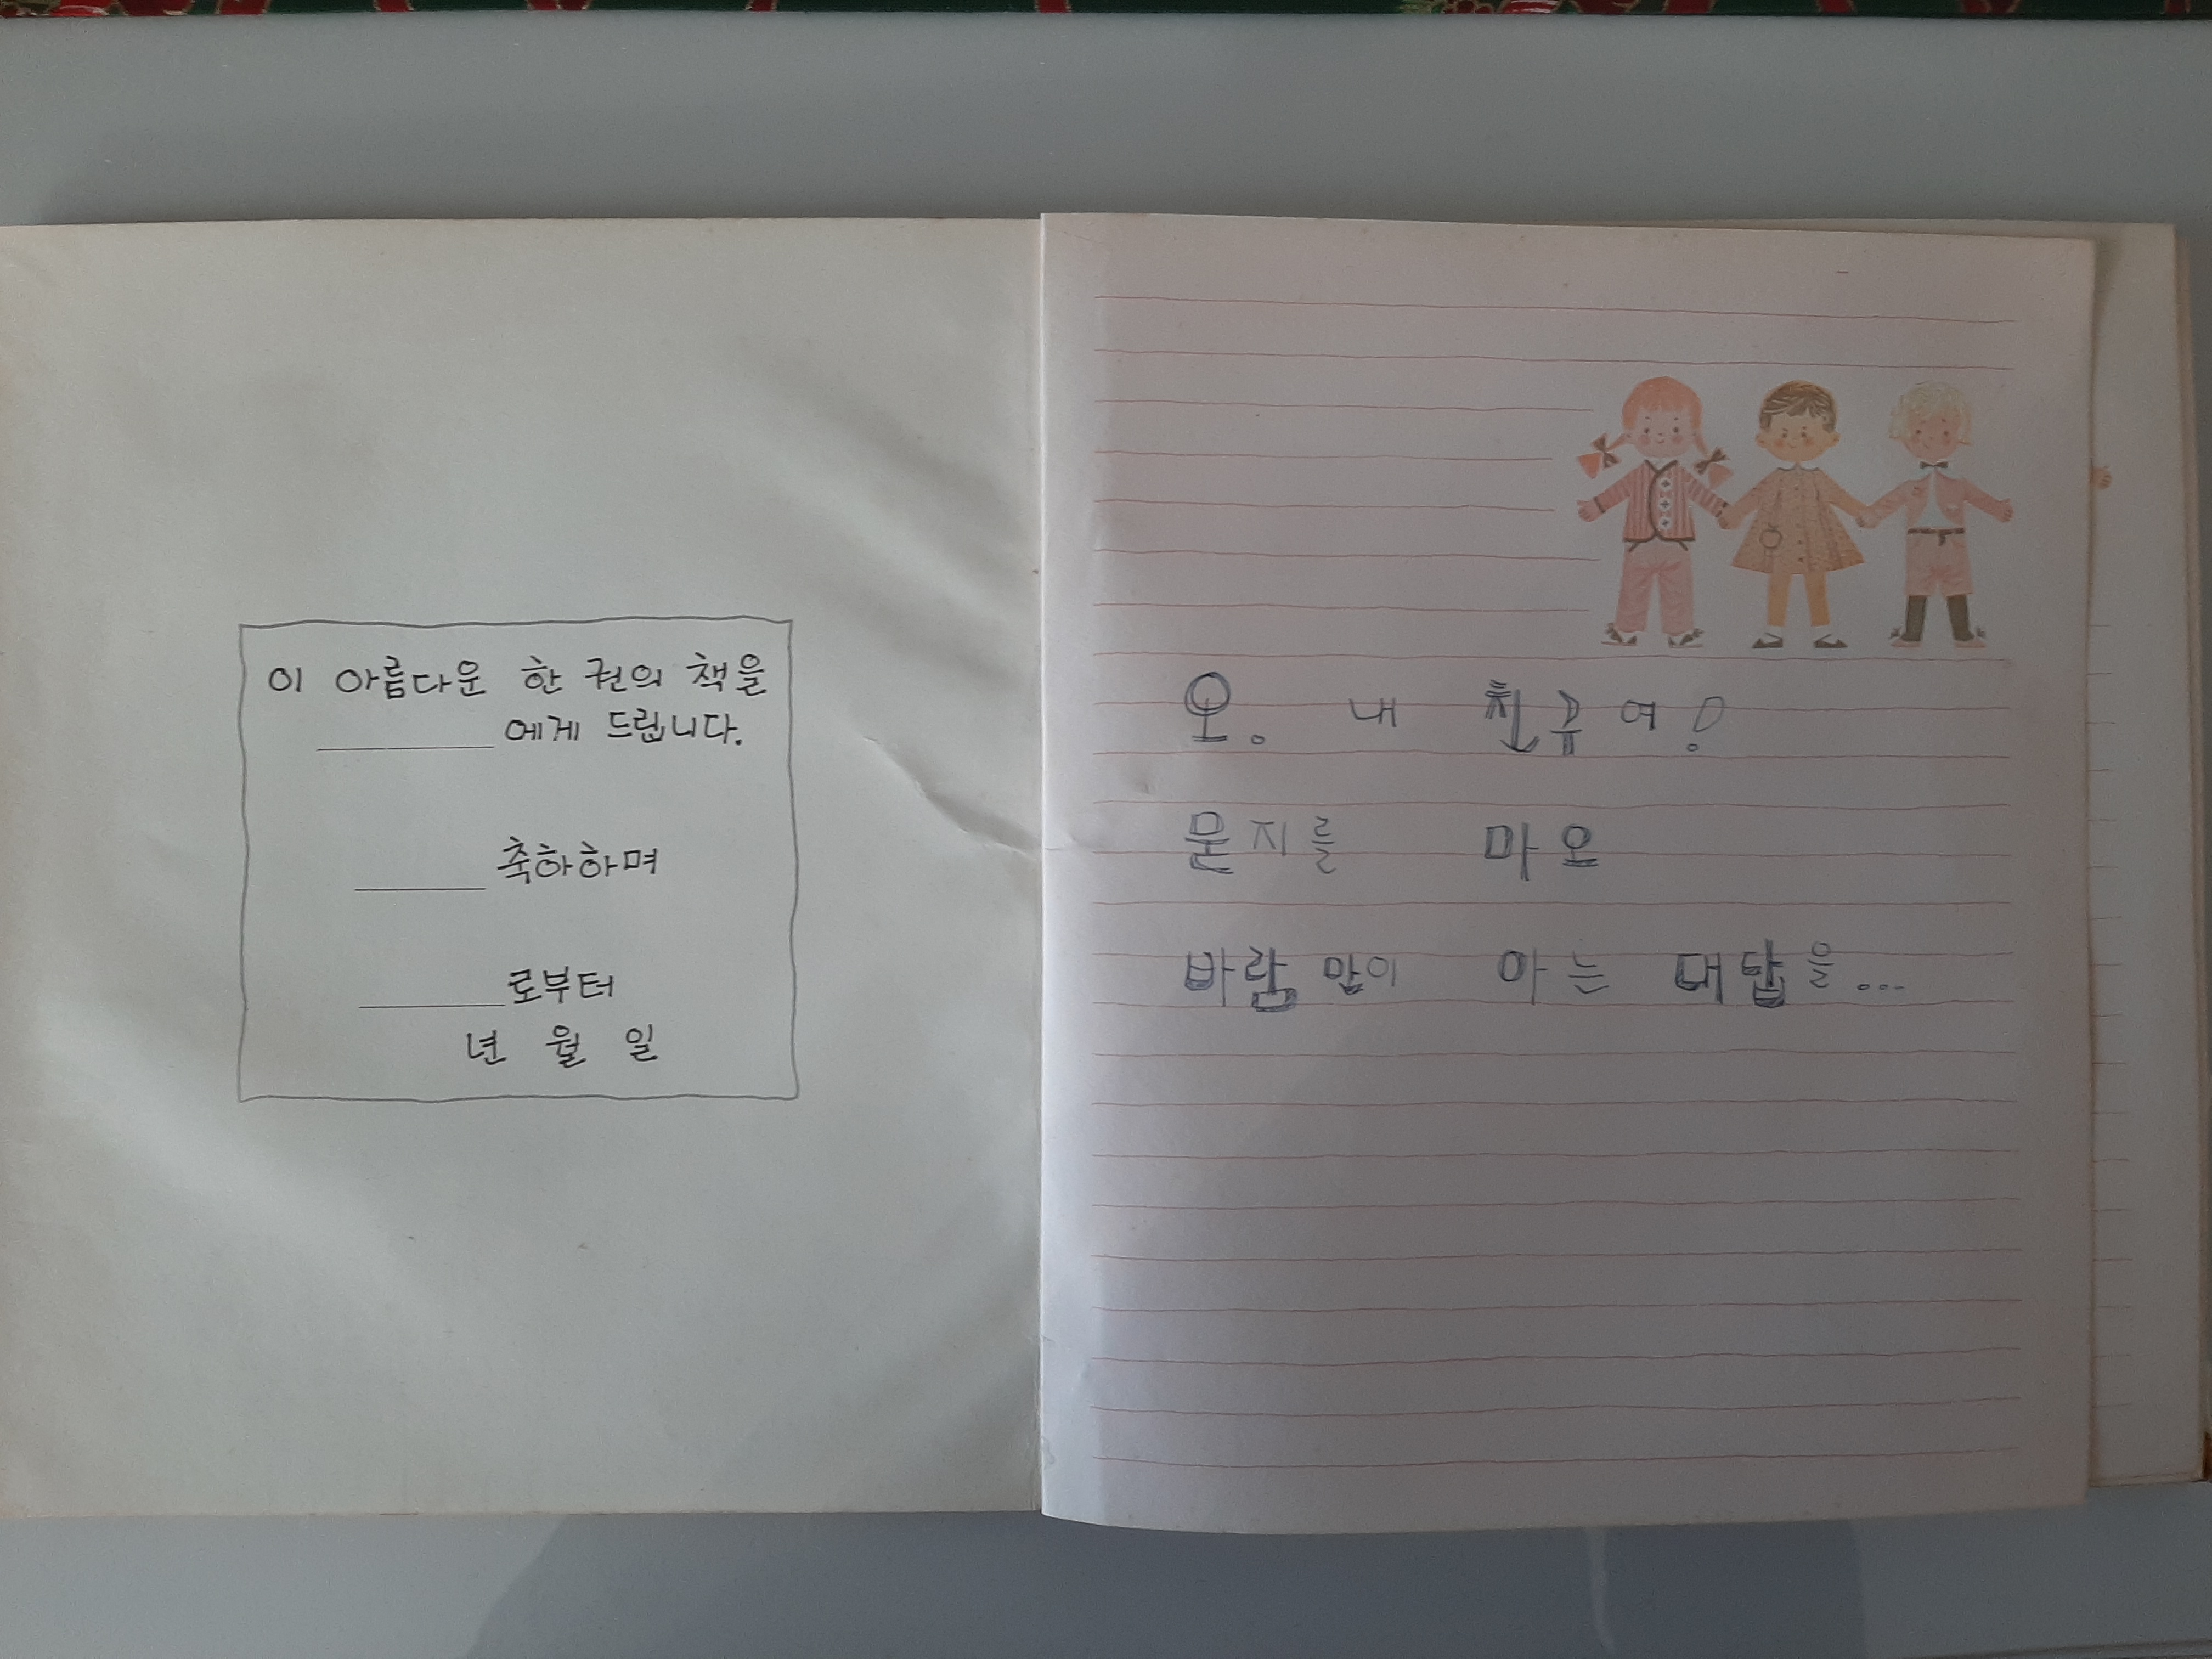 이 아름다운 한 권의 책을
에게 드립니다.
축하하며
로부터
년 월 일
오. 내 친구여!
묻지를 마오
바람만이 아는 대답을...